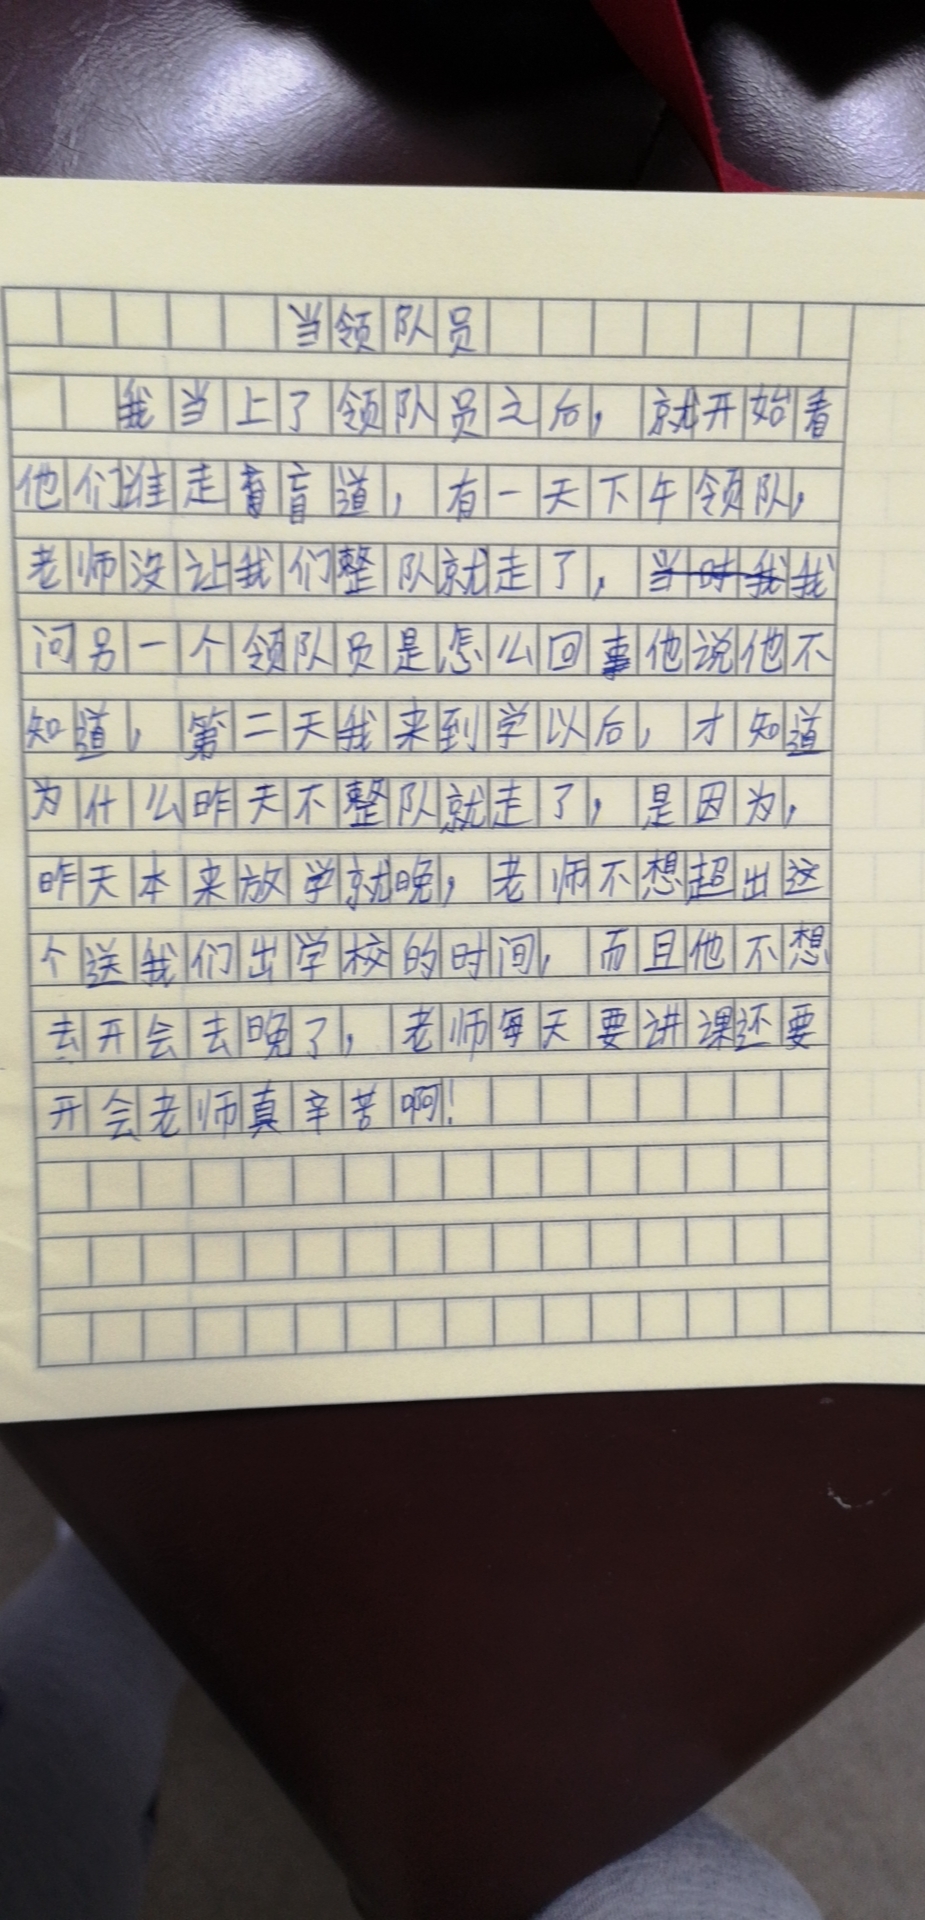 当领队员
我当上了领队员之后，就开始看
他们谁走盲道，有一天下午领队，
老师没让我们整队就走了，当时我我
问另一个领队员是怎么回事他说他不
知道，第二天我来到学以后，才知道
为什么昨天不整队就走了，是因为，
昨天本来放学就晚，老师不想超出这
个送我们出学校的时间，而且他不想
去开会去晚了，老师每天要讲课还要
开会老师真辛苦啊！